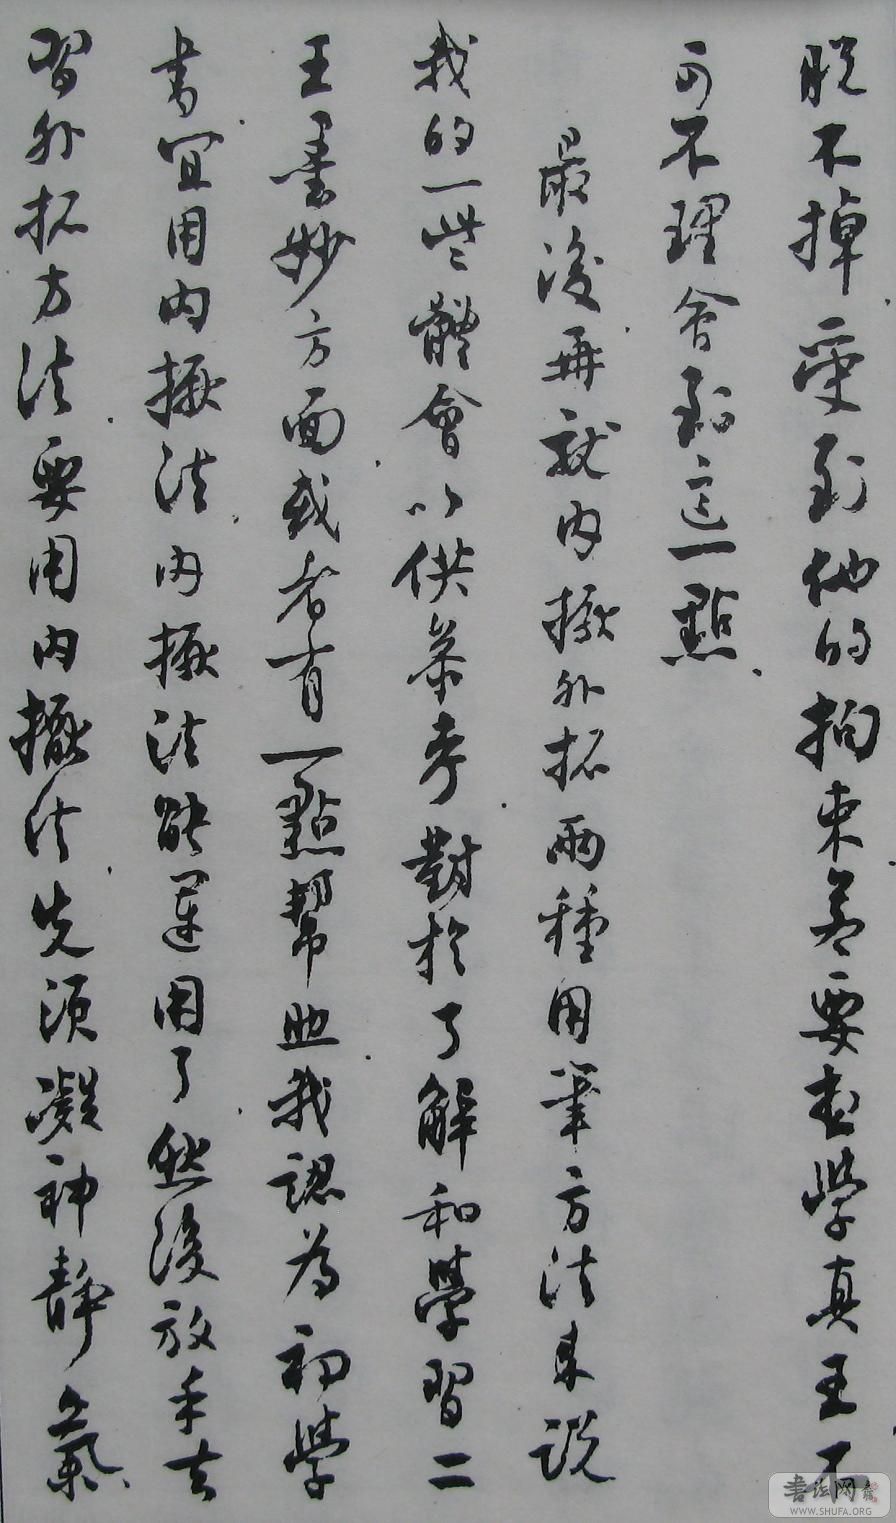 脫不掉受到他的拘束。若要想學真王，不
可不理會到這一點。
最後再就內擫外拓兩種用筆方法來說
我的一些體會，以供參考。對於了解和學習二
王書妙方面，或者有一點幫助。我認為初學
書宜用內擫法，內擫法能運用了，然後放手去
習外拓方法。要用內擫法，先須凝神靜氣，
書法网
WWW.SHUFA.ORG